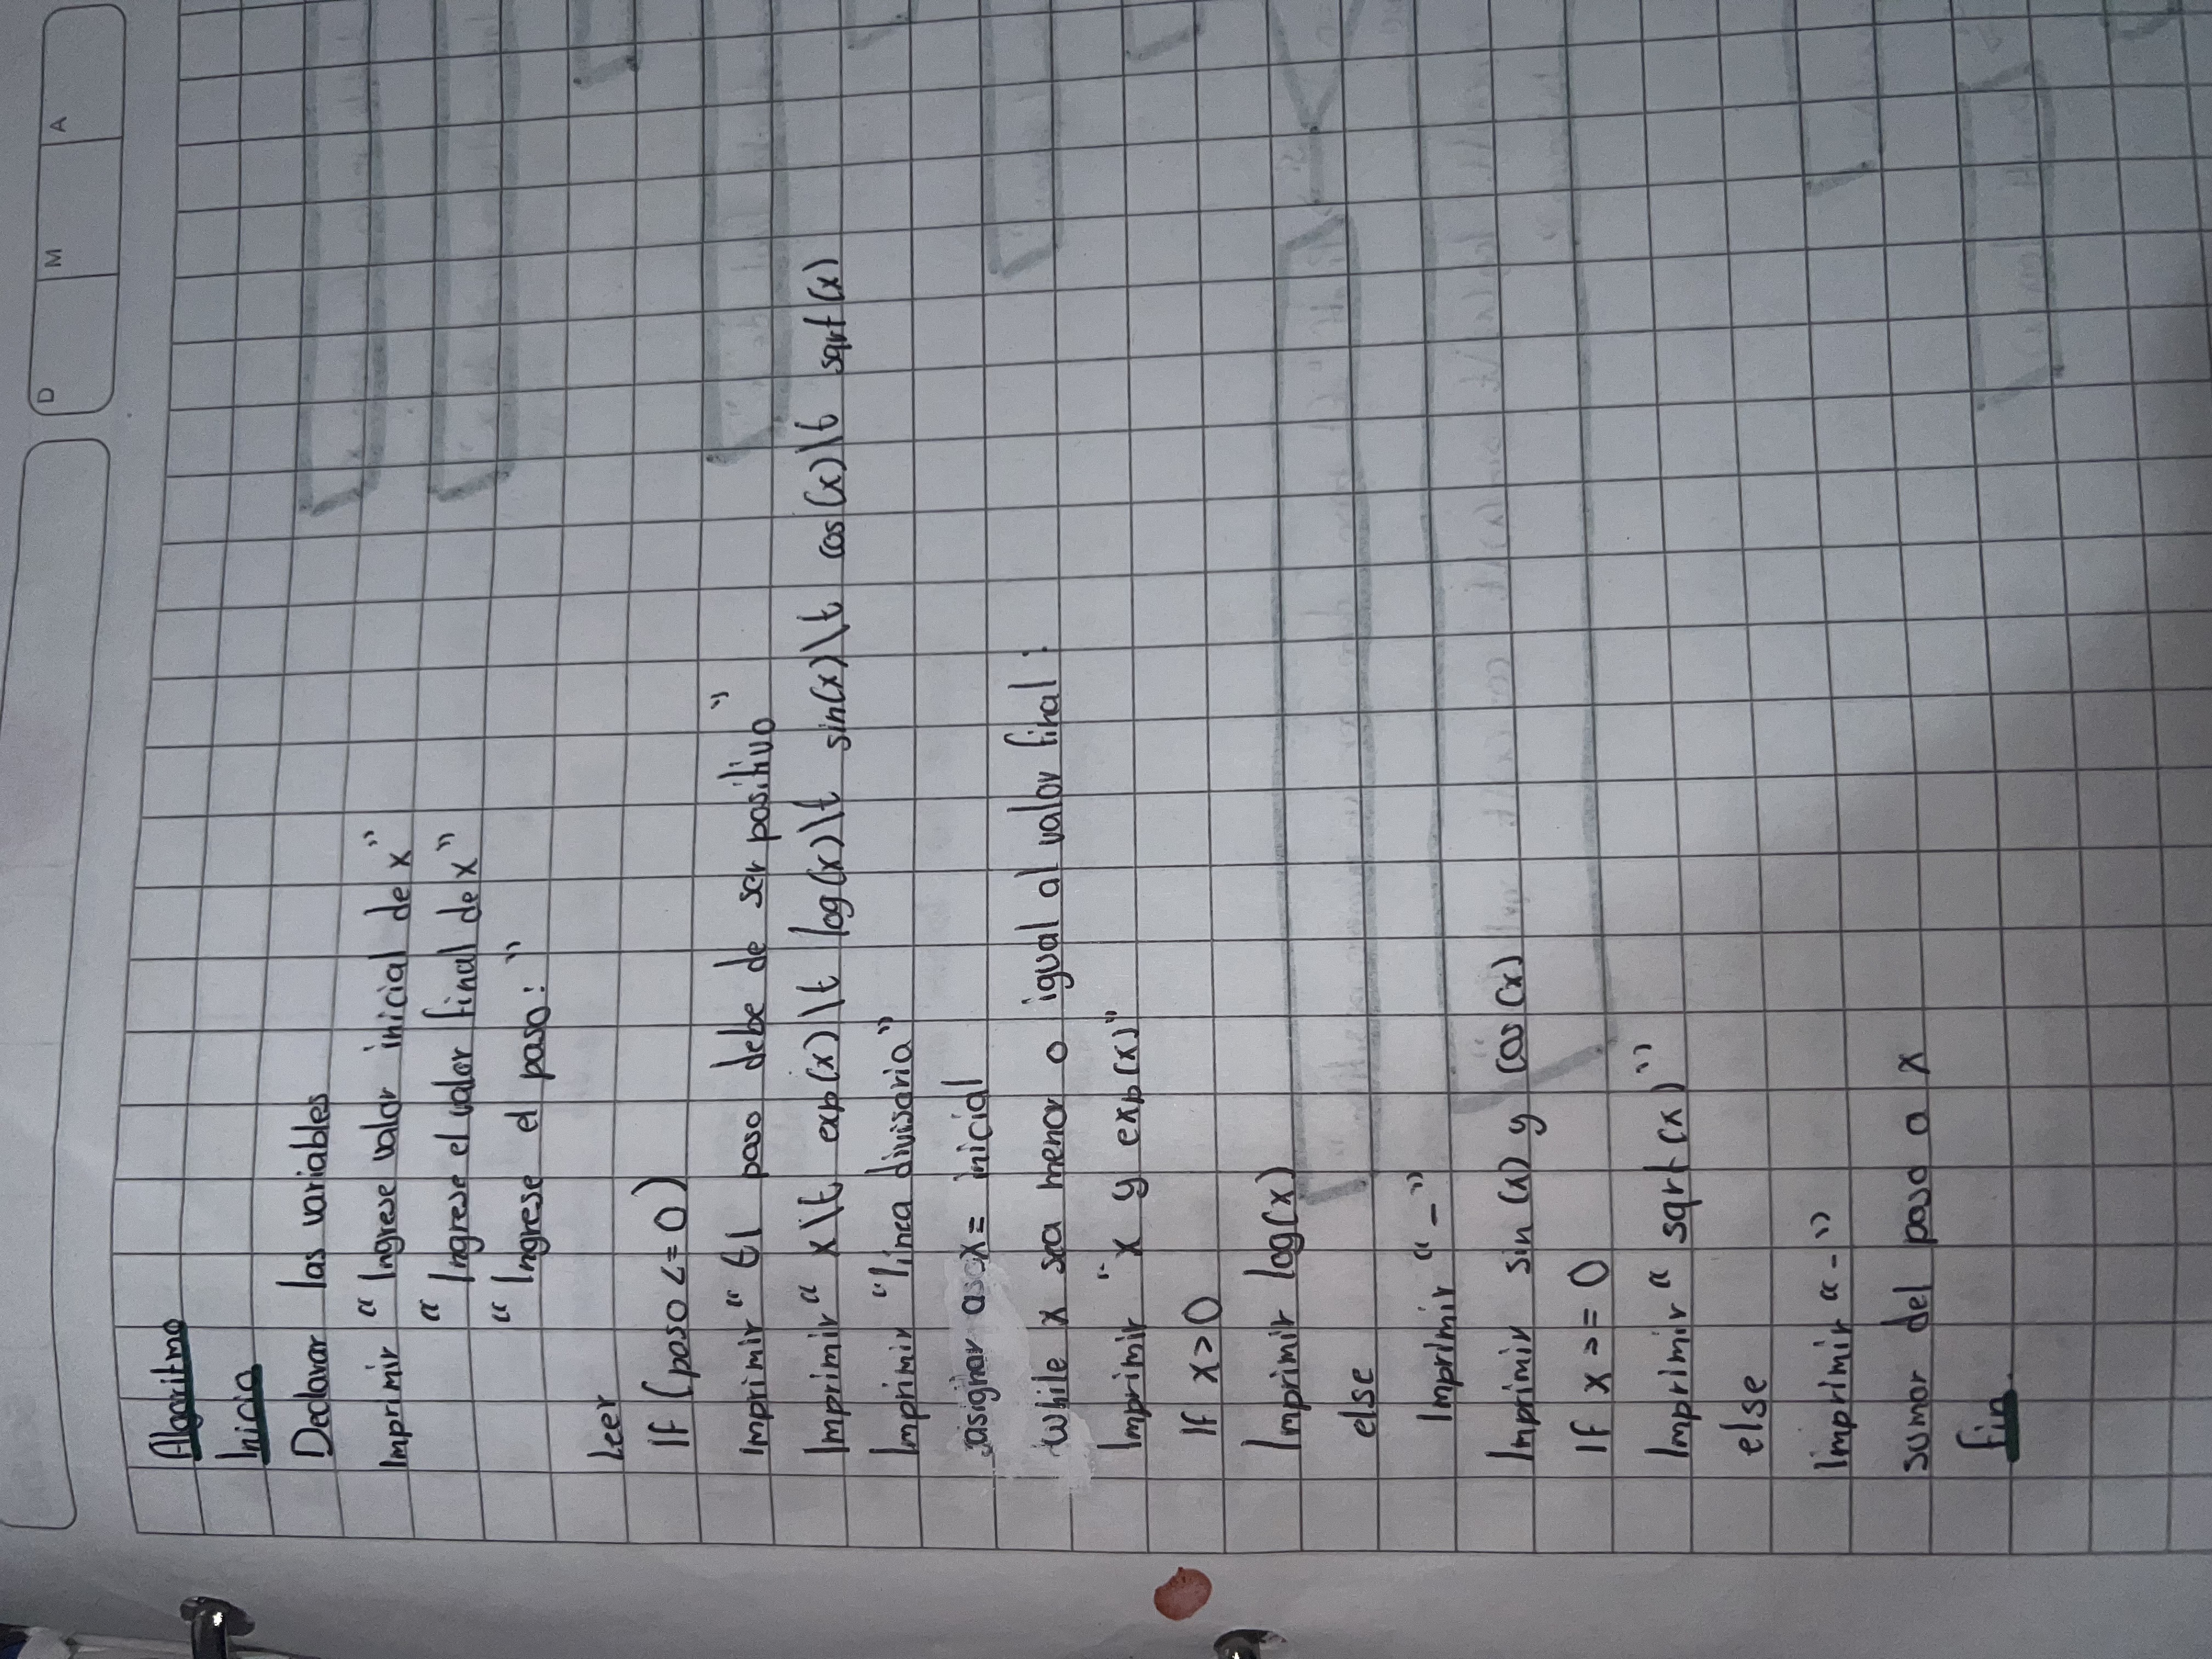 D M A
Algoritmo
Inicio
Declarar las variables
Imprimir “Ingrese valor inicial de x”
“Ingrese el valor final de x”
“Ingrese el paso:”
Leer
If (paso <= 0)
Imprimir “El paso debe de ser positivo”
Imprimir “ x\t exp(x)\t log(x)\t sin(x)\t cos(x)\t sqrt(x)
Imprimir “linea divisoria”
asignar a x = inicial
while x sea menor o igual al valor final:
Imprimir “x y exp(x)”
If x>0
Imprimir log(x)
else
Imprimir “-”
Imprimir sin(x) y cos(x)
If x >= 0
Imprimir “sqrt(x)”
else
Imprimir “-”
sumar del paso a x
Fin